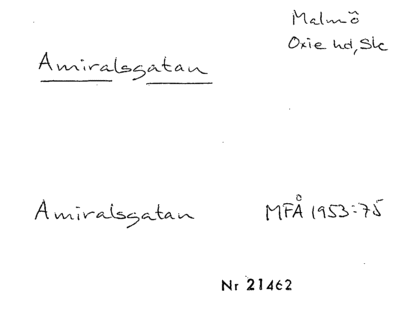 Malmö
Oxie hd, Sk
Amiralsgatan
Amiralsgatan MFÅ 1953:75
Nr 21462